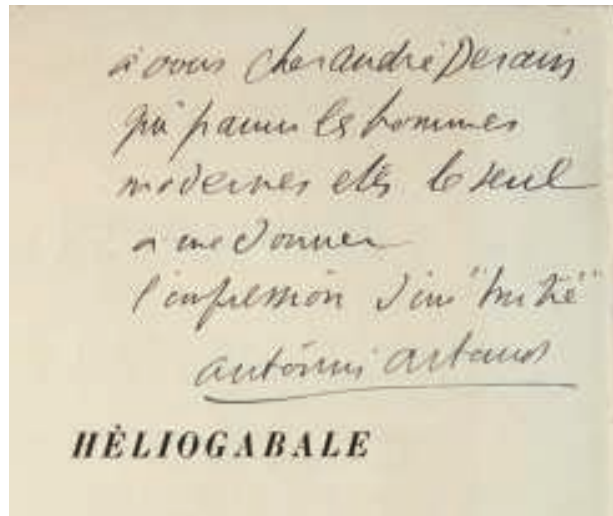 à vous cher andré Derain
qui parmi les hommes
modernes etes le seul
a me donner
l'impression d'un "Initié"
antonin artaud
HÈLIOGABALE